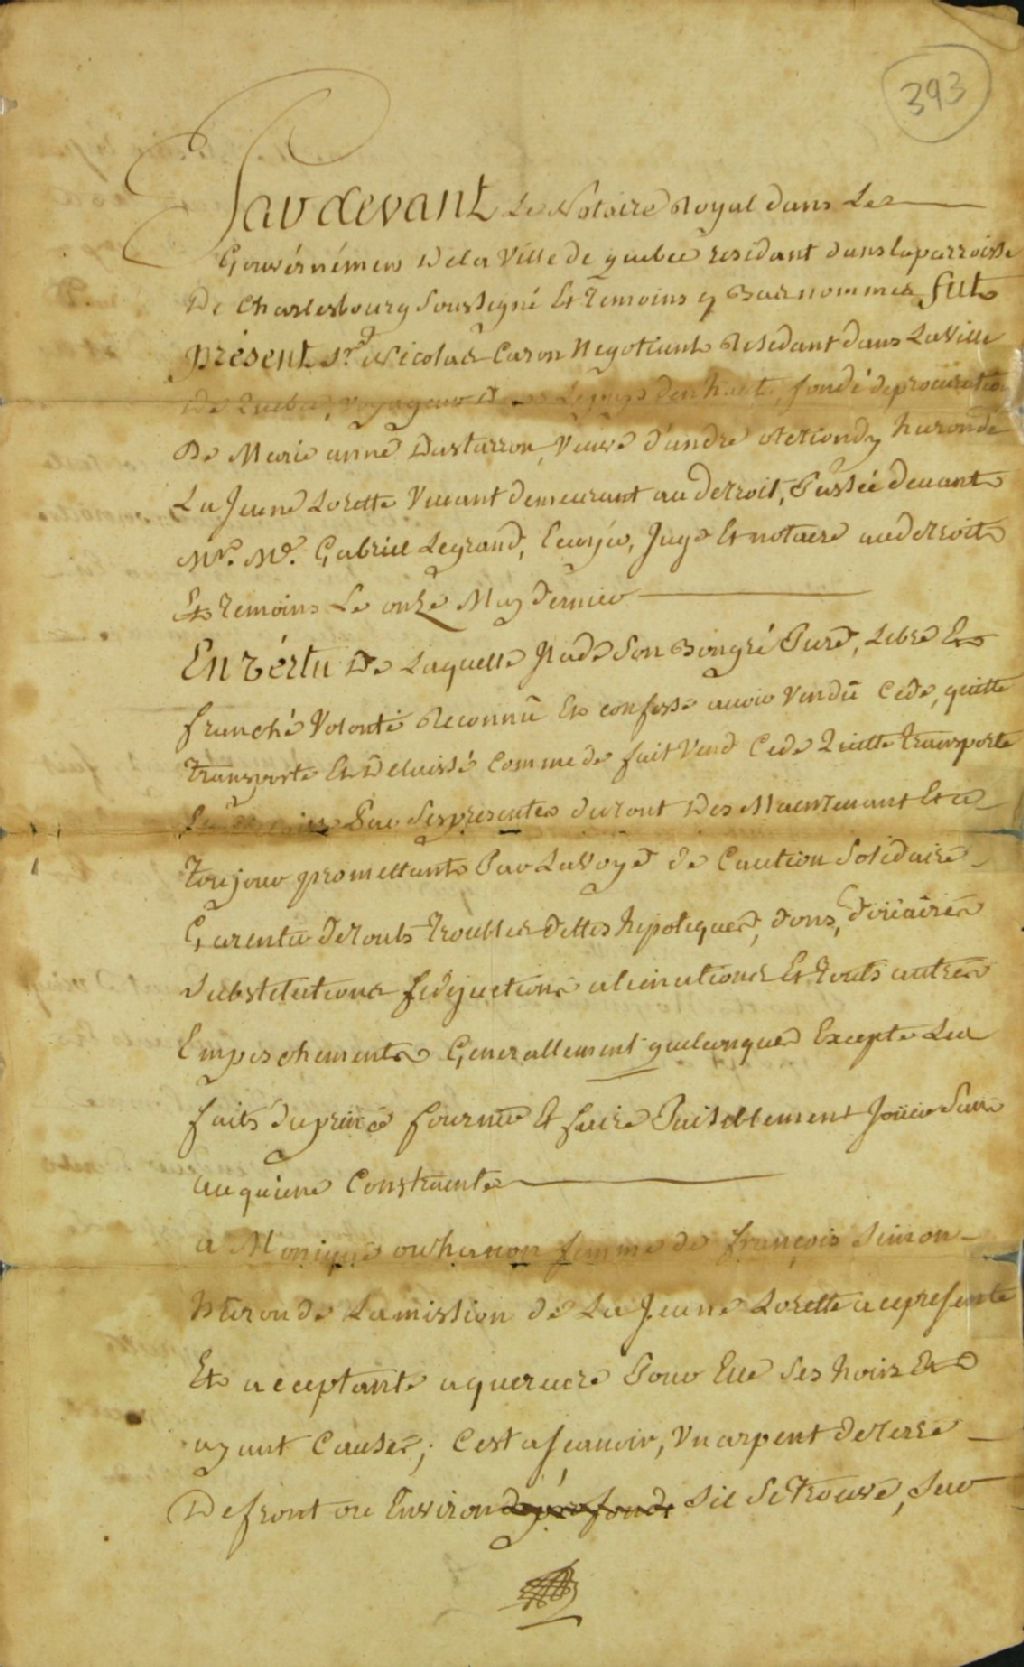 393
Pardevant Le Notaire Royal dans Le
Gouvérnémen Dela Ville de quebec residant dans laparroisse
De Charlesbourg Soussigné Et Temoins y Bas nommes fut
présent Sr. Nicolas Caron Negotiant Residant dans La Ville
De Quebec, voyageur Les pays den haut, fondé deprocuration
De Marie anne veuve d'andré huron de
La Jeune Lorette Vivant demeurant au detroit, Passée devant
Mr. Me. Gabriel Legrand, Ecuyer, Juge Et notaire audetroit
Et Temoins Le onze May dernier
En vértu De Laquelle Jl a de Son Bongré Pure, Libre Et
franché Volonté Reconnû Et confessé avoir Vendû Cedé, quitté
Transporté Et Delaissé Comme de fait Vend Cede Quitte transporte
Par Sespresentes duront Des Maintenant Et a
Toujour promettant Par La Voye de Caution Solidaire
Garentir Detouts Troubles dettes hipoteques, dons, doüaires
Substitutions alienations Et Touts autres
Empeschements Generallement quelconques Excepte Les
faits du prince fournir Et faire Paisiblement Joüir Sans
aucquune Constrainte
a Monique femme de françois Simon
huron de La mission de La Jeune Lorette a cepresente
Et acceptante aquereure Pour Elle Ses hoirs Et
ayant Cause; C'est asscavoir, Vn arpent deterre
De front ou Environ de profond Sil Se trouve, Sur